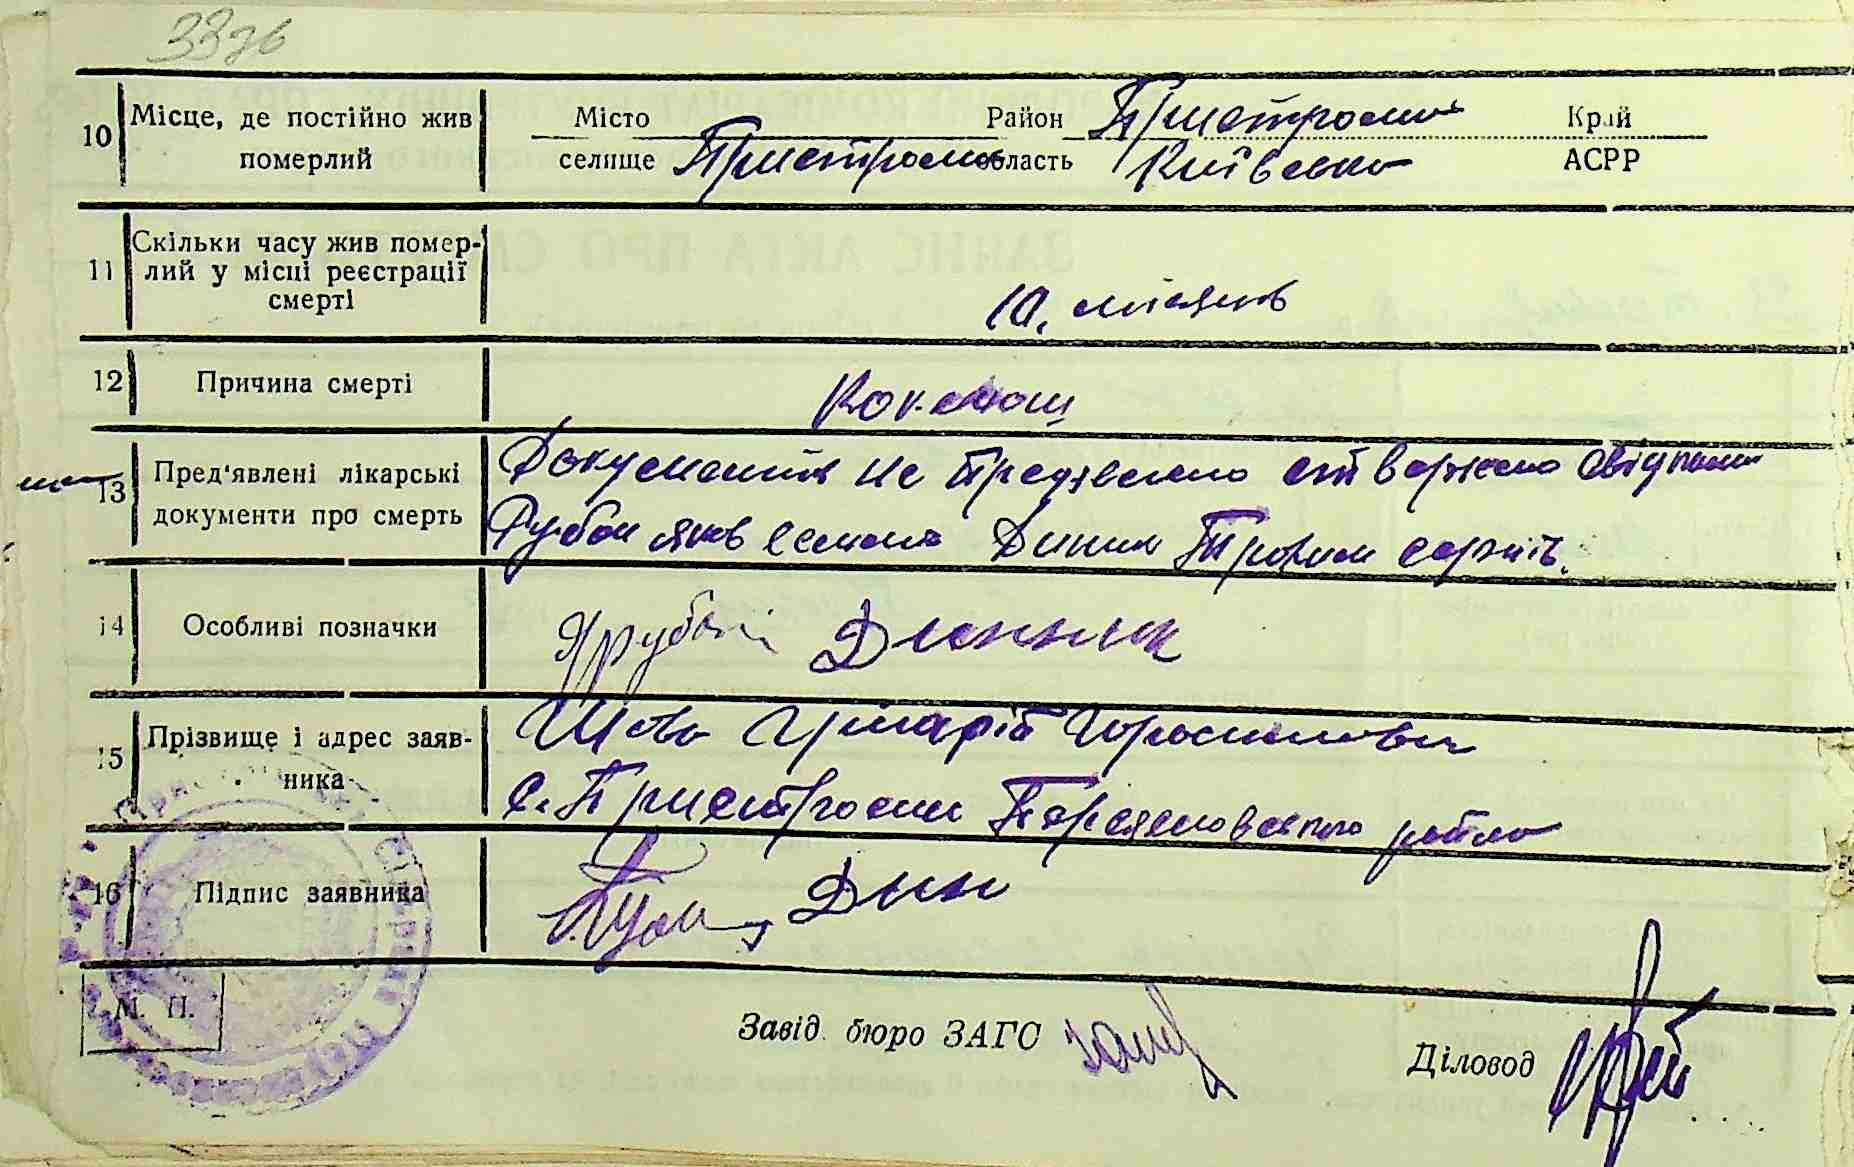 33зв
10 Місце, де постійно жив померлий
Місто Район Пристроми Край
селище Пристроми область Київська АСРР
11 Скільки часу жив помер-
лий у місці реєстрації
смерті
10. місяців
12 Причина смерті Коклюш
13 Пред'явлені лікарські
документи про смерть
Документів не предявлено ствержено свідками
Рубан Яків Динник Трохим
14 Особливі позначки Ярубан Динник
15 Прізвище і адрес заяв-
ника
с. Пристроми Переяславського району
16 Підпис заявника Дин
М. П.
Завід. бюро ЗАГС
Діловод